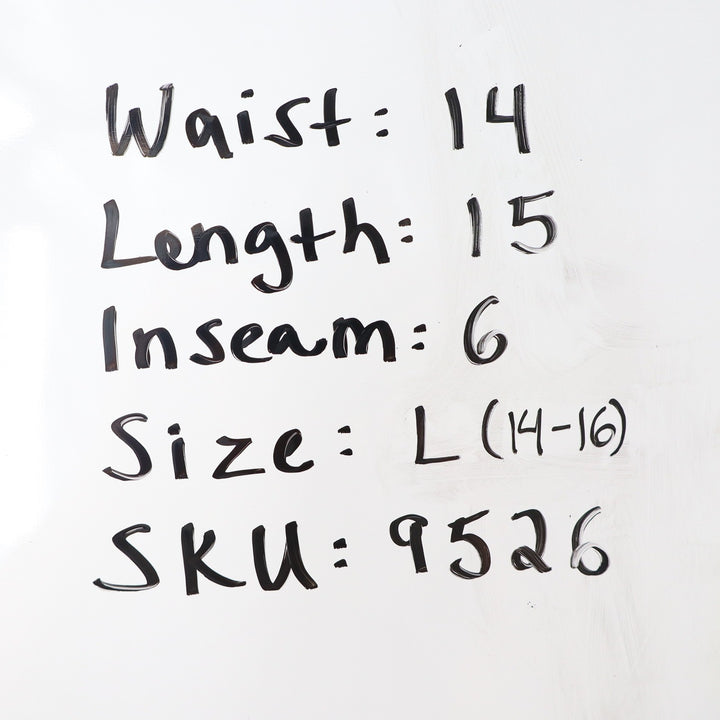 Waist: 14
Length: 15
Inseam: 6
Size: L (14-16)
SKU: 9526